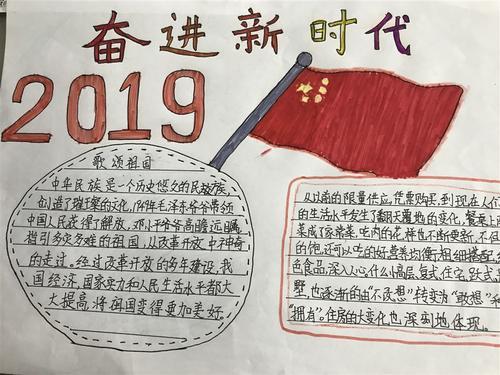 奋进新时代
2019
歌颂祖国
中华民族是一个历史悠久的民族
也创造了璀璨的文化,1949年毛泽东爷爷带领
中国人民获得了解放,邓小平爷爷高瞻远瞩
指引多灾多难的祖国,从改革开放中神奇
的走过。经过改革开放的多年建设,我
国经济,国家实力和人民生活水平都大
大提高,将祖国变得更加美好。
从以前的限量供应,凭票购买,到现在人们
的生活水平发生了翻天覆地的变化,餐桌上
菜成了家常菜,吃肉的花样也不断更新,不
的饱,还可以吃的好,营养均衡,粗细搭配,
色食品"深入人心,什么小高层,复式住宅,跃式,
墅,也逐渐的由"不敢想"转变为"敢想"和
"拥有"。住房的大变化也,深刻地体现。